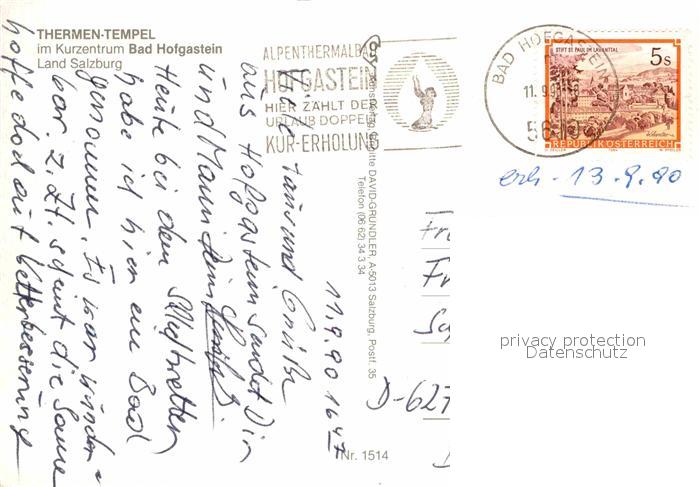 THERMEN-TEMPEL
im Kurzentrum Bad Hofgastein
Land Salzburg
ALPENTHERMALBAD
HOFGASTEIN
HIER ZÄHLT DER
URLAUB DOPPELT
KUR-ERHOLUNG
BAD HOFGASTEIN
11.9.90
5630
STIFT ST. PAUL IM LAVANTTAL
5 s
REPUBLIK ÖSTERREICH
erh. 13.9.90
11.9.90 16 47
tausend Grüße
aus Hofgastein sendet Dir
und Mann
Heute bei dem
habe ich hier ein Bad
genommen. Es war wunder=
bar. Z. Zt. scheint die Sonne
hoffe doch auf Wetterbesserung
DAVID-GRUNDLER, A-5013 Salzburg, Postf. 35
Telefon (06 62) 34 3 34
Nr. 1514
D-627
privacy protection
Datenschutz